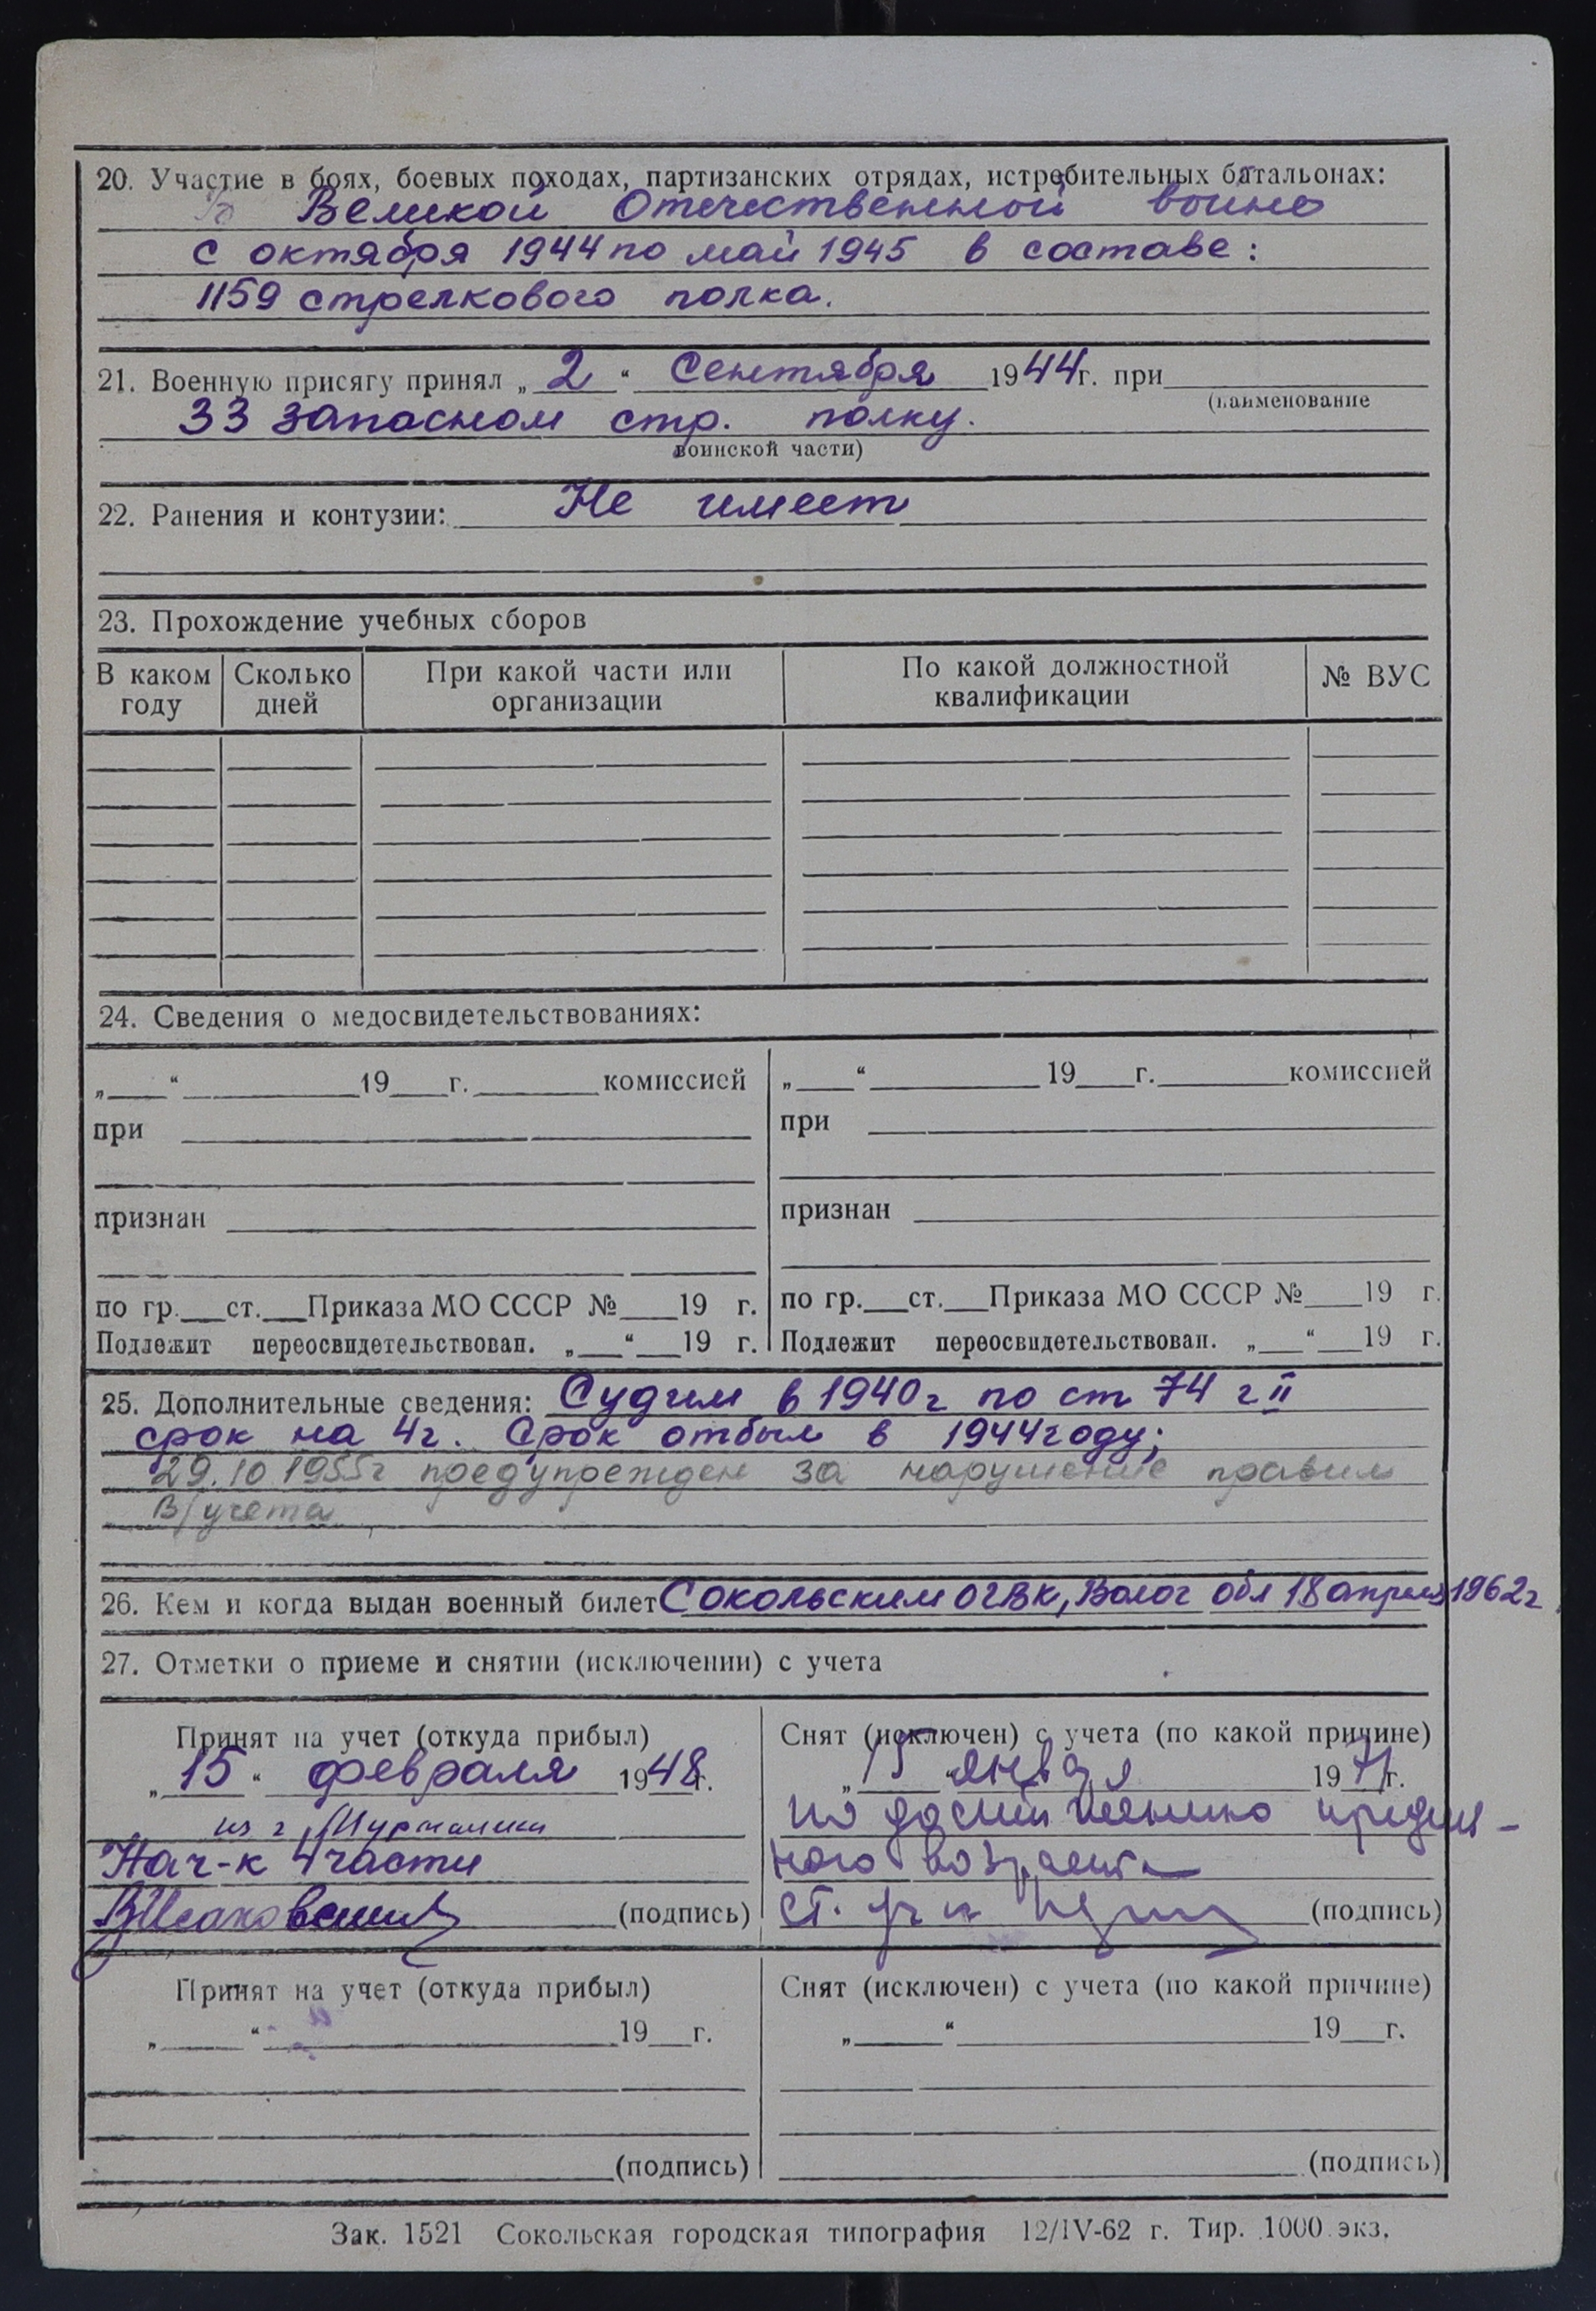 20. Участие в боях, боевых походах, партизанских отрядах, истребительных батальонах:
В Великой Отечественной войне
с октября 1944 по май 1945 в составе:
1159 стрелкового полка.
21. Военную присягу принял „ 2 “ Сентября 1944г. при
(наименование
33 запасном стр. полку.
воинской части)
22. Ранения и контузии: Не имеет
23. Прохождение учебных сборов
В каком году Сколько дней При какой части или организации По какой должностной квалификации № ВУС
24. Сведения о медосвидетельствованиях:
„ “ 19 г. комиссией „ “ 19 г. комиссией
при при
признан признан
по гр. ст. Приказа МО СССР № 19 г. по гр. ст. Приказа МО СССР № 19 г.
Подлежит переосвидетельствован. „ “ 19 г. Подлежит переосвидетельствован. „ “ 19 г.
25. Дополнительные сведения: Судим в 1940г по ст 74 г II
срок на 4г. Срок отбыл в 1944 году;
29.10 1955г предупрежден за нарушение правил
в/учета
26. Кем и когда выдан военный билет Сокольским ОГВК, Волог обл 18 апреля 1962г
27. Отметки о приеме и снятии (исключении) с учета
Принят на учет (откуда прибыл) Снят (исключен) с учета (по какой причине)
„ 15 “ февраля 1948г. „ 15 “ января 1971г.
из г. Мурманска по достижению предель-
Нач-к 4 части ного возраста
(подпись) (подпись)
Принят на учет (откуда прибыл) Снят (исключен) с учета (по какой причине)
„ “ 19 г. „ “ 19 г.
(подпись) (подпись)
Зак. 1521 Сокольская городская типография 12/IV-62 г. Тир. 1000 экз.